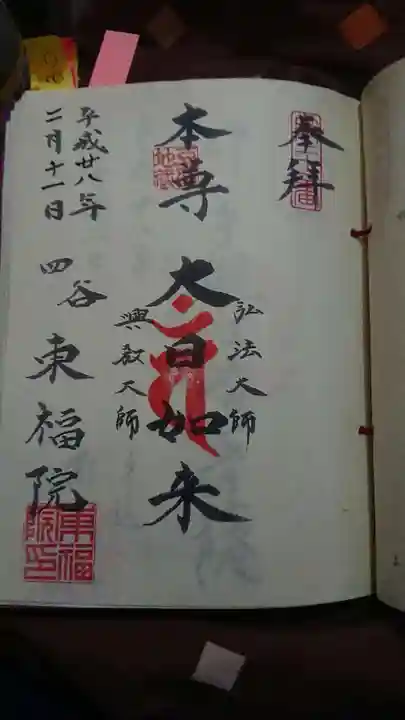 奉拝
弘法大師
本尊 大日如来
興教大師
平成廿八年
二月十一日
四谷 東福院
東福院印